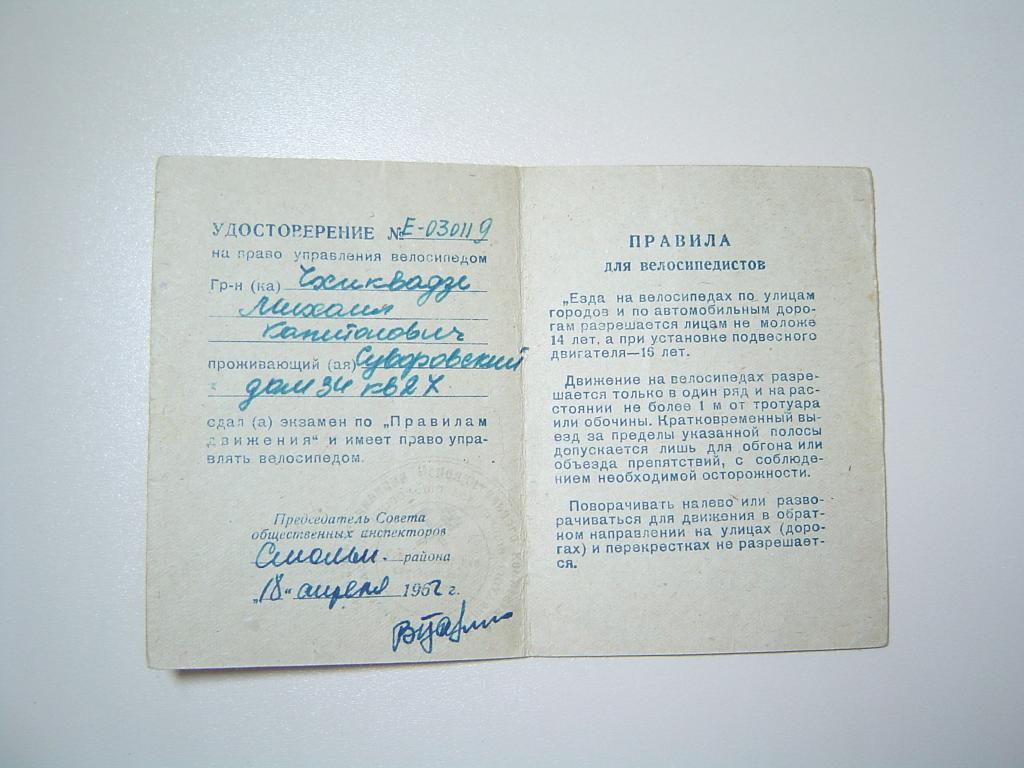 УДОСТОВЕРЕНИЕ № Е-030119
на право управления велосипедом
Гр-н (ка) Чхиквадзе
Михаил
Капитонович
проживающий (ая) Суворовский
дом 34 кв 27
сдал (а) экзамен по „Правилам
движения" и имеет право упра-
влять велосипедом.
Председатель Совета
общественных инспекторов
Смольн. района
„18" апреля 1962 г.
ПРАВИЛА
для велосипедистов
„Езда на велосипедах по улицам
городов и по автомобильным доро-
гам разрешается лицам не моложе
14 лет, а при установке подвесного
двигателя—16 лет.
Движение на велосипедах разре-
шается только в один ряд и на рас-
стоянии не более 1 м от тротуара
или обочины. Кратковременный вы-
езд за пределы указанной полосы
допускается лишь для обгона или
объезда препятствий, с соблюде-
нием необходимой осторожности.
Поворачивать налево или разво-
рачиваться для движения в обрат-
ном направлении на улицах (доро-
гах) и перекрестках не разрешает-
ся.